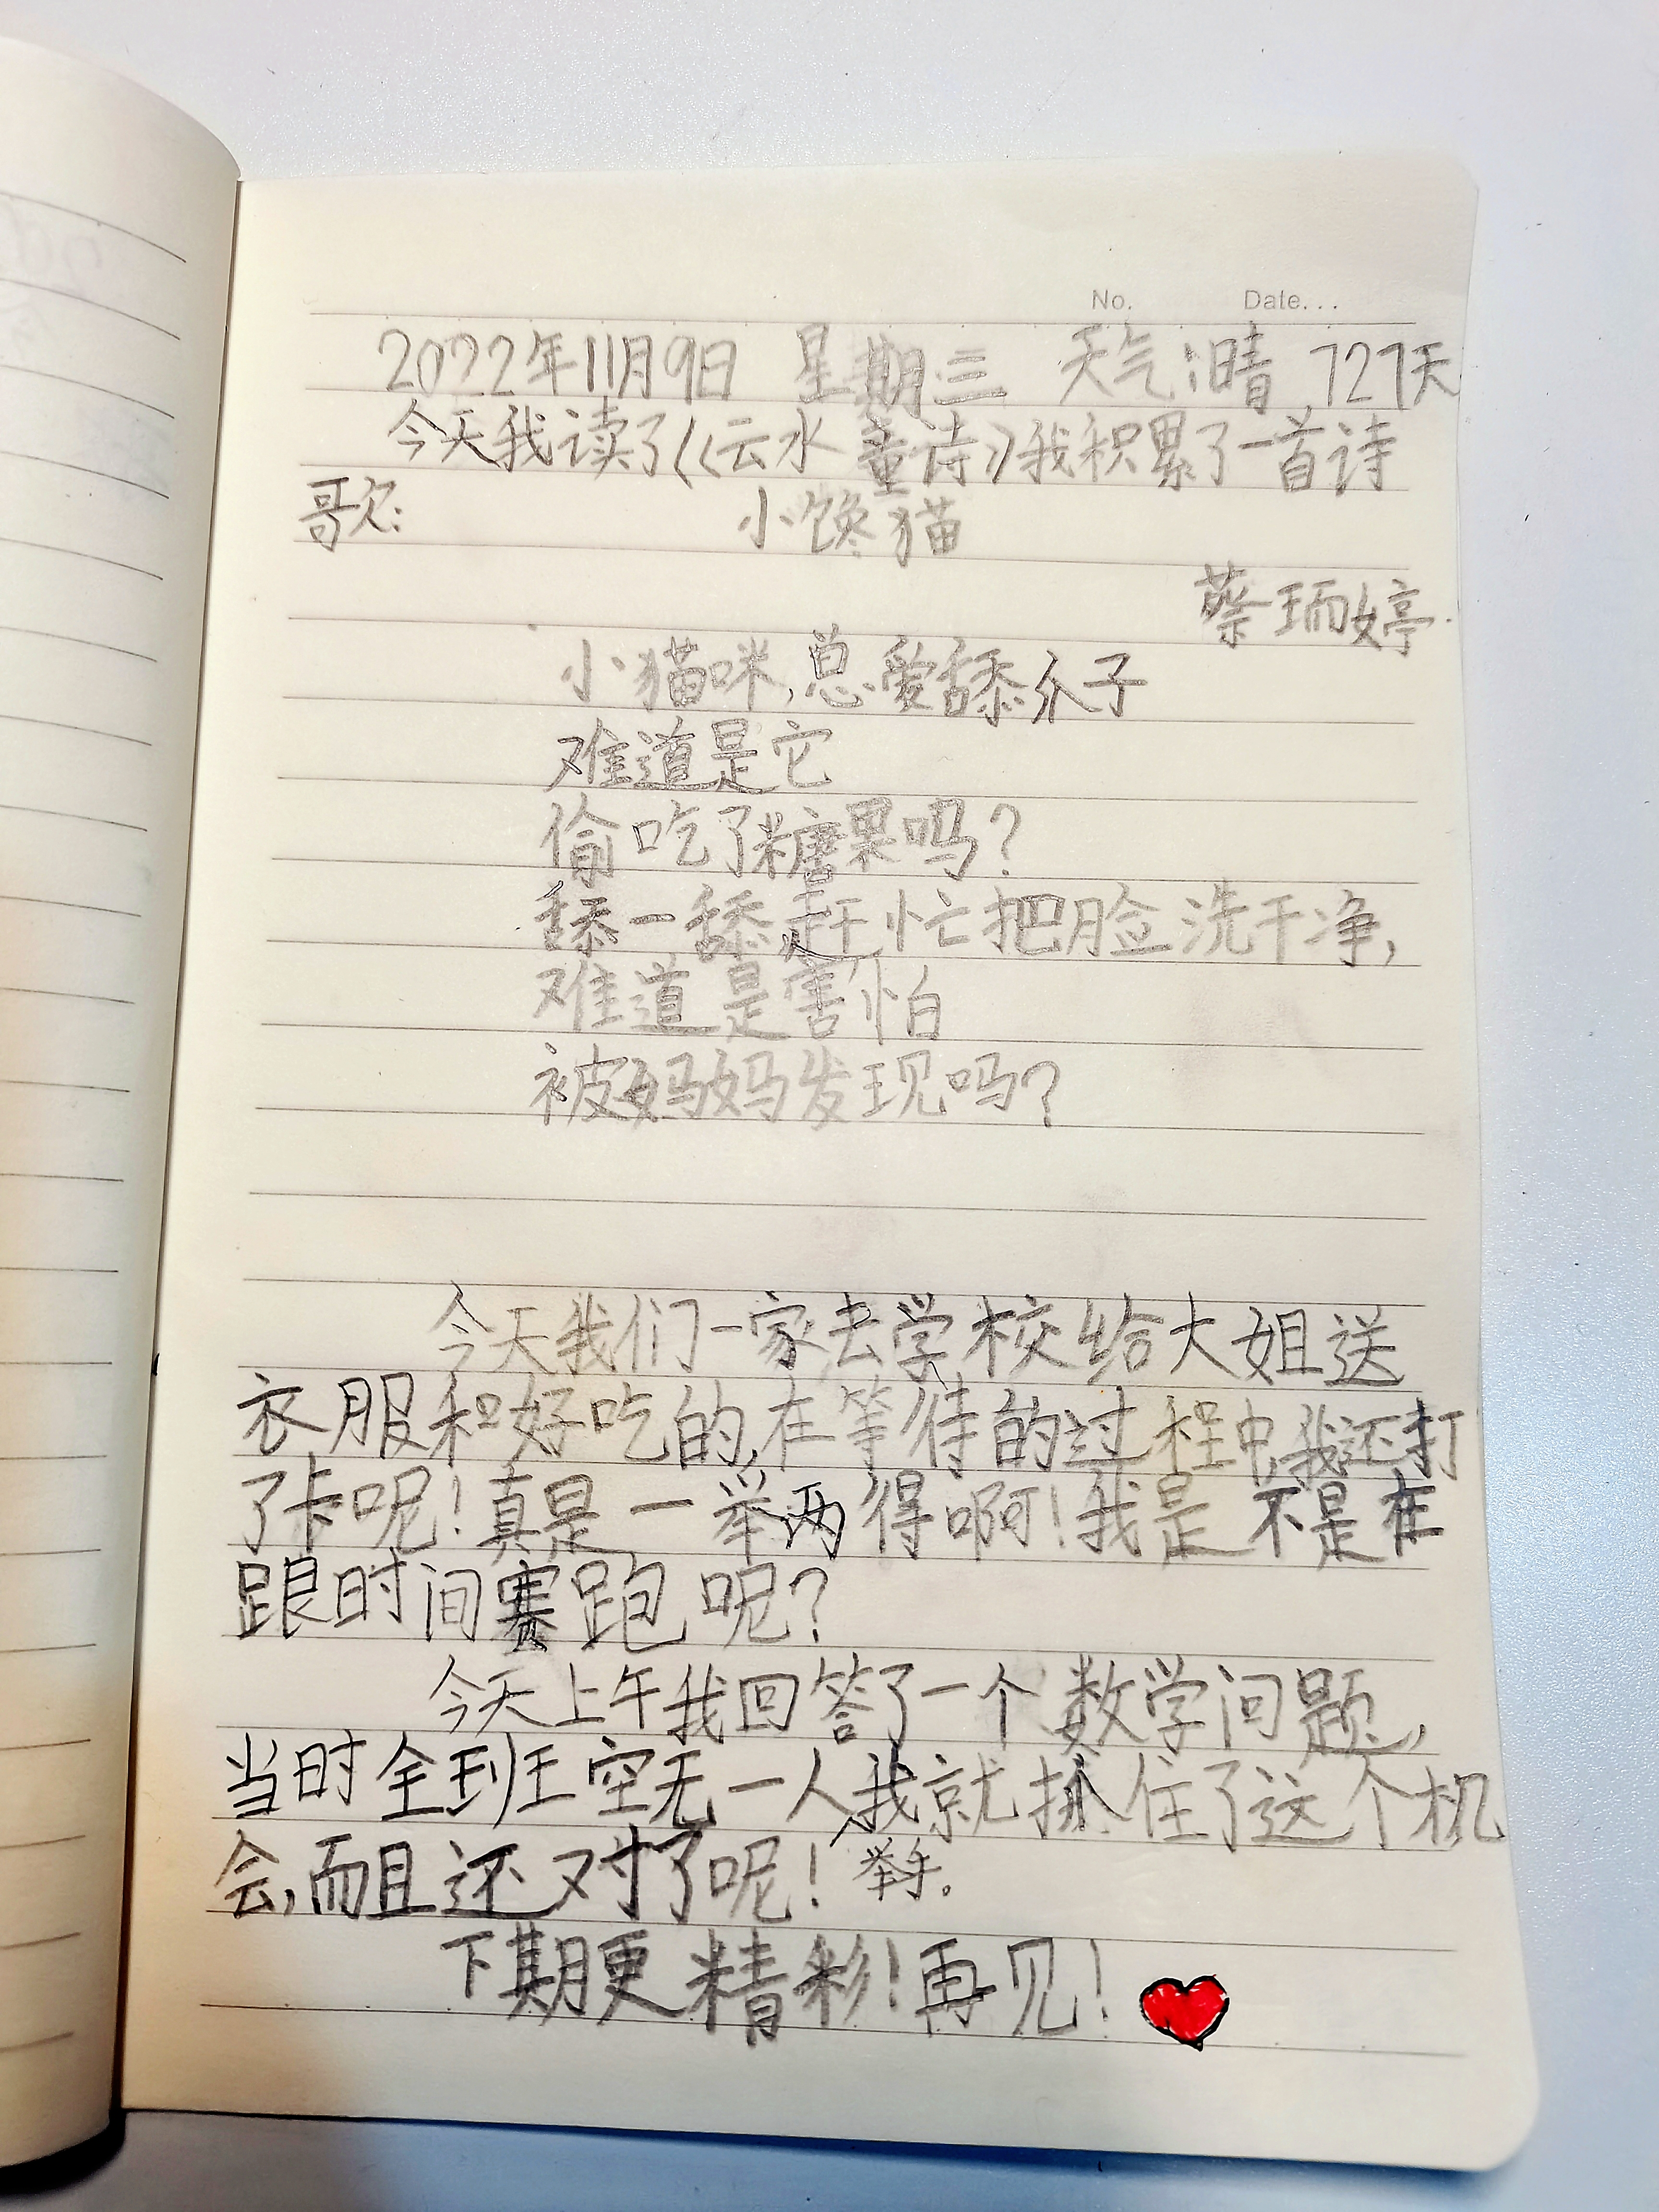 No. Date...
2022年11月9日 星期三 天气:晴 727天
今天我读了《云水童诗》我积累了一首诗
歌: 小馋猫
蔡瑀婷
小猫咪,总爱舔爪子
难道是它
偷吃了糖果吗?
舔一舔,赶忙把脸洗干净,
难道是害怕
被妈妈发现吗?
今天我们一家去学校给大姐送
衣服和好吃的,在等待的过程中,我还打
了卡呢!真是一举两得啊!我是不是在
跟时间赛跑呢?
今天上午我回答了一个数学问题,
当时全班空无一人我就抓住了这个机
会,而且还对了呢! 举手。
下期更精彩!再见!